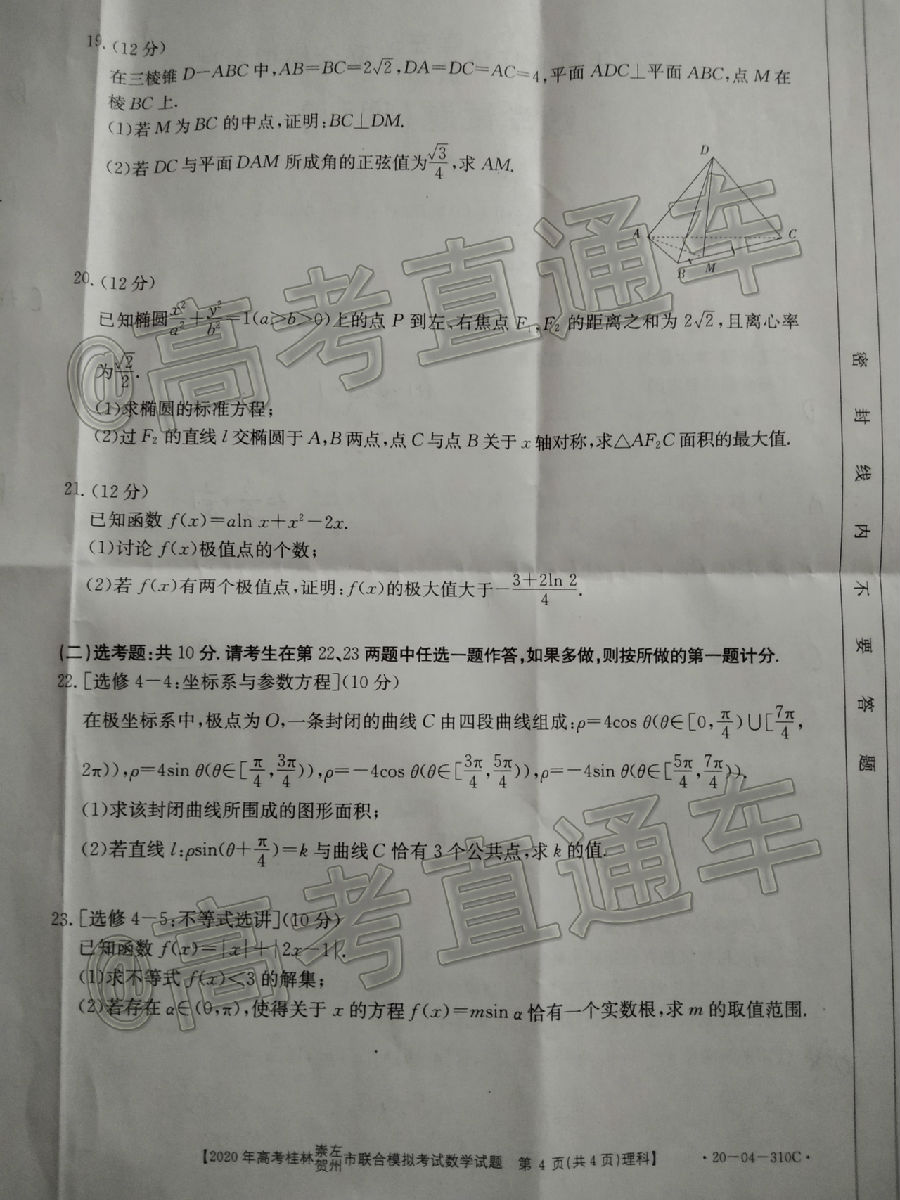 19.(12分)
在三棱锥 D-ABC 中,AB=BC=2√2,DA=DC=AC=4,平面 ADC⊥平面 ABC,点 M 在
棱 BC 上.
(1)若 M 为 BC 的中点,证明:BC⊥DM.
(2)若 DC 与平面 DAM 所成角的正弦值为√3/4,求 AM.
D
A
C
B
M
20.(12分)
已知椭圆x²/a²+y²/b²=1(a>b>0)上的点 P 到左、右焦点 F₁,F₂ 的距离之和为 2√2,且离心率
为√2/2.
(1)求椭圆的标准方程;
(2)过 F₂ 的直线 l 交椭圆于 A,B 两点,点 C 与点 B 关于 x 轴对称,求△AF₂C 面积的最大值.
21.(12分)
已知函数 f(x)=aln x+x²-2x.
(1)讨论 f(x)极值点的个数;
(2)若 f(x)有两个极值点,证明:f(x)的极大值大于-(3+2ln 2)/4.
(二)选考题:共 10 分.请考生在第 22、23 两题中任选一题作答,如果多做,则按所做的第一题计分.
22.[选修 4-4:坐标系与参数方程](10分)
在极坐标系中,极点为 O,一条封闭的曲线 C 由四段曲线组成:ρ=4cos θ(θ∈[0,π/4)∪[7π/4,
2π)),ρ=4sin θ(θ∈[π/4,3π/4)),ρ=-4cos θ(θ∈[3π/4,5π/4)),ρ=-4sin θ(θ∈[5π/4,7π/4)).
(1)求该封闭曲线所围成的图形面积;
(2)若直线 l:ρsin(θ+π/4)=k 与曲线 C 恰有 3 个公共点,求 k 的值.
23.[选修 4-5:不等式选讲](10分)
已知函数 f(x)=|x|+|2x-1|.
(1)求不等式 f(x)<3 的解集;
(2)若存在 α∈(0,π),使得关于 x 的方程 f(x)=msin α 恰有一个实数根,求 m 的取值范围.
【2020年高考桂林崇左贺州市联合模拟考试数学试题 第 4 页(共 4 页)理科】 ·20-04-310C·
密封线内不要答题
@高考直通车
@高考直通车